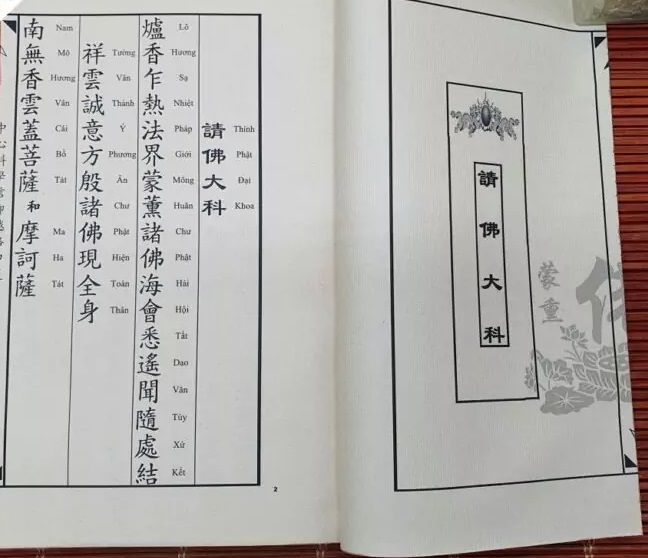 請佛大科
蒙熏
請佛大科
Thỉnh Phật Đại Khoa
爐香乍熱法界蒙薰諸佛海會悉遙聞隨處結
Lô Hương Sạ Nhiệt Pháp Giới Mông Huân Chư Phật Hải Hội Tất Dao Văn Tùy Xứ Kết
祥雲誠意方殷諸佛現全身
Tường Vân Thành Ý Phương Ân Chư Phật Hiện Toàn Thân
南無香雲蓋菩薩和摩訶薩
Nam Mô Hương Vân Cái Bồ Tát Ma Ha Tát
2